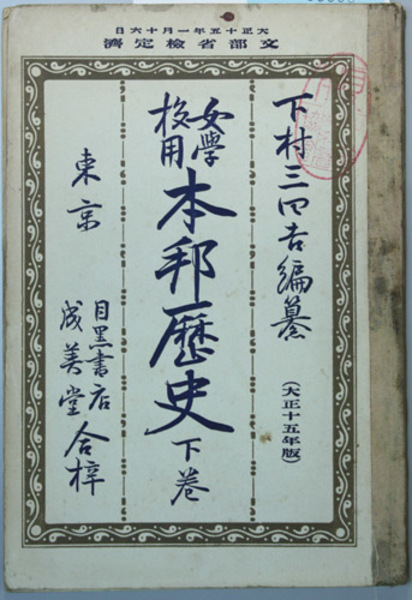 大正十五年一月十六日
文部省檢定濟
下村三四吉編纂
(大正十五年版)
女學
校用
本邦歷史下卷
東京
目黑書店
成美堂
合梓